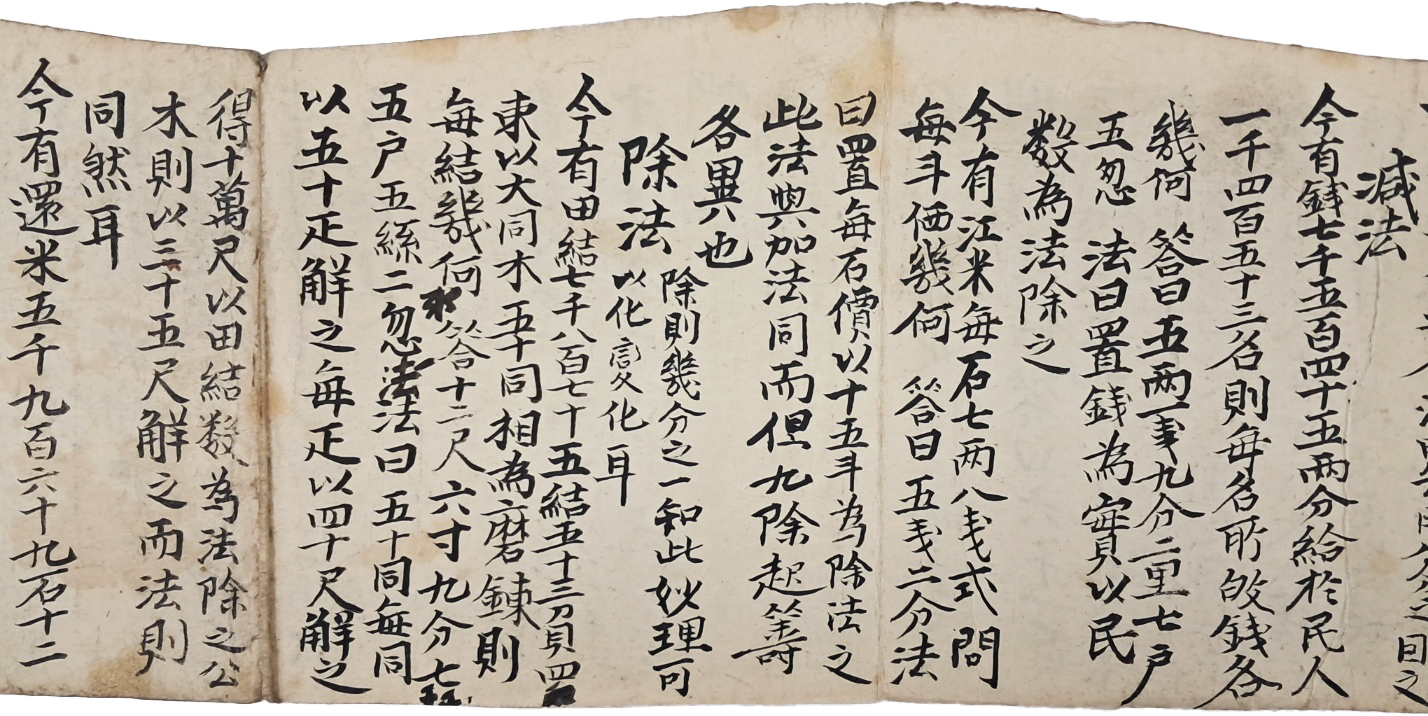 減法
今有錢七千五百四十五两分給於民人
一千四百五十三名則每名所的錢各
幾何 答曰五两一戔九分二里七户
五忽 法曰置錢為實以民
数為法除之
今有江米每石七两八戔式問
每斗価幾何 答曰五戔二分法
曰置每石價以十五斗為除法之
此法與加法同而但九除起筭
各異也
除法 除則幾分之一知此妙理可
以化変化耳
今有田結七千八百七十五結五十三刀負四
東以大同木五十同相為磨鍊則
每結幾何 答十二尺六寸九分七
五户五絲二忽法曰五十同每同
以五十疋解之每疋以四十尺解之
得十萬尺以田結数為法除之公
木則以三十五尺解之而法則
同然耳
今有還米五千九百六十九石十二